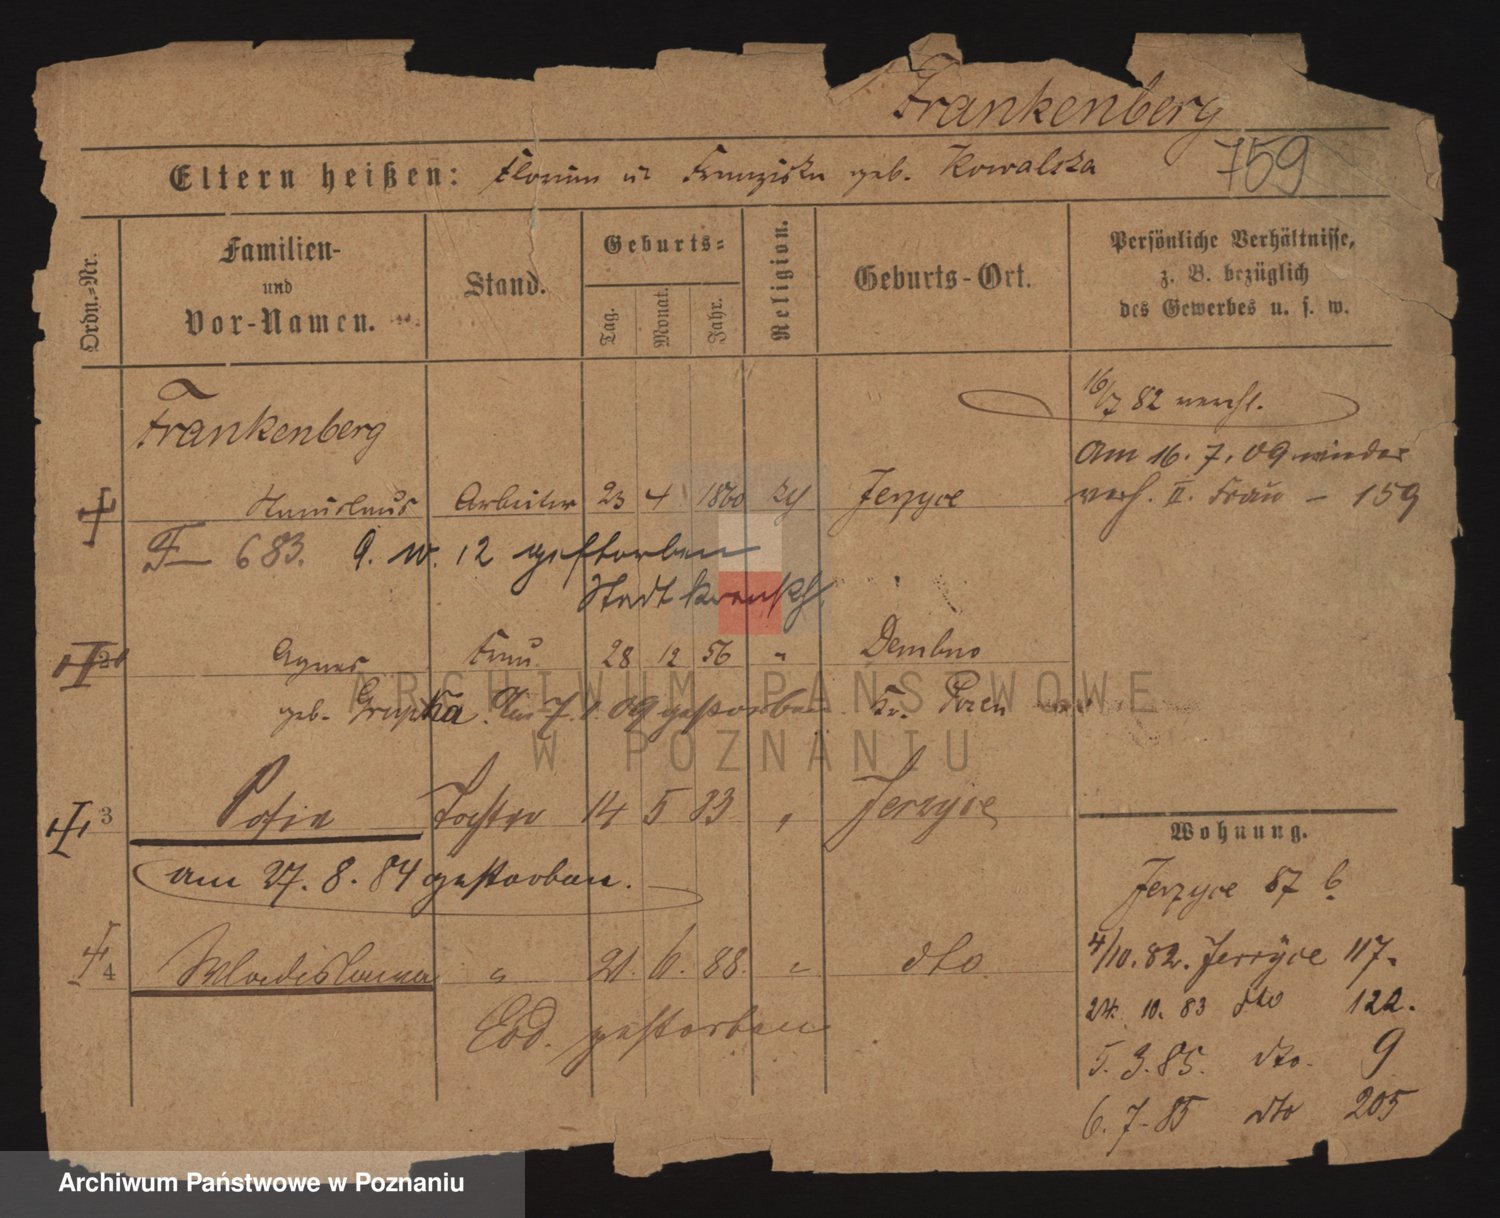 Frankenberg
759
Eltern heißen: Florian u Franziska geb. Kowalska
Ordn.-Nr.
Familien-
und
Vor-Namen.
Stand.
Geburts-
Tag.
Monat.
Jahr.
Religion.
Geburts-Ort.
Persönliche Verhältnisse,
z. B. bezüglich
des Gewerbes u. s. w.
16/7 82 verehl.
Frankenberg
Am 16. 7. 09 wieder
Stanislaus Arbeiter 23 4 1860 Jerzyce
verh. II. Frau - 159
F 683. 9. 12 gestorben
Stadtkrankh.
2 Agnes Frau 28 12 56 " Dembno
geb. Am 7. 1. 09 gestorben Kr.
3 Sofia Tochter 14 5 83 " Jerzyce
am 27. 8. 84 gestorben.
4 Wladislawa " 21. 6. 88. " dto.
Eod. gestorben
Wohnung.
Jerzyce 87 b
4/10. 82. Jerzyce 117.
24. 10. 83 dto 122.
5. 3. 85. dto. 9
6. 7. 85 dto 205
ARCHIWUM PAŃSTWOWE
W POZNANIU
Archiwum Państwowe w Poznaniu